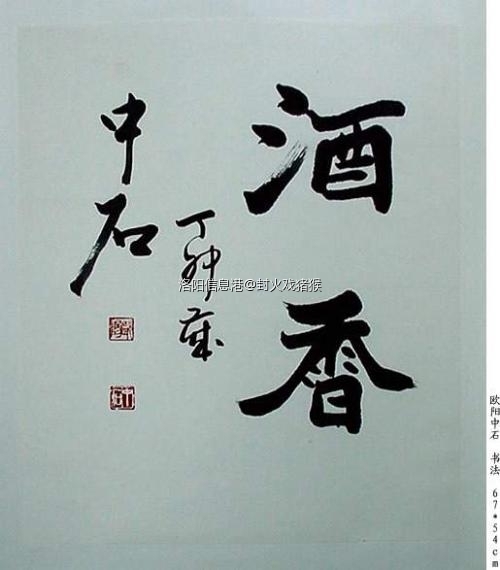 酒香
丁卯歲
中石
洛阳信息港@封火戏猪猴
欧阳中石 书法 67*54cm